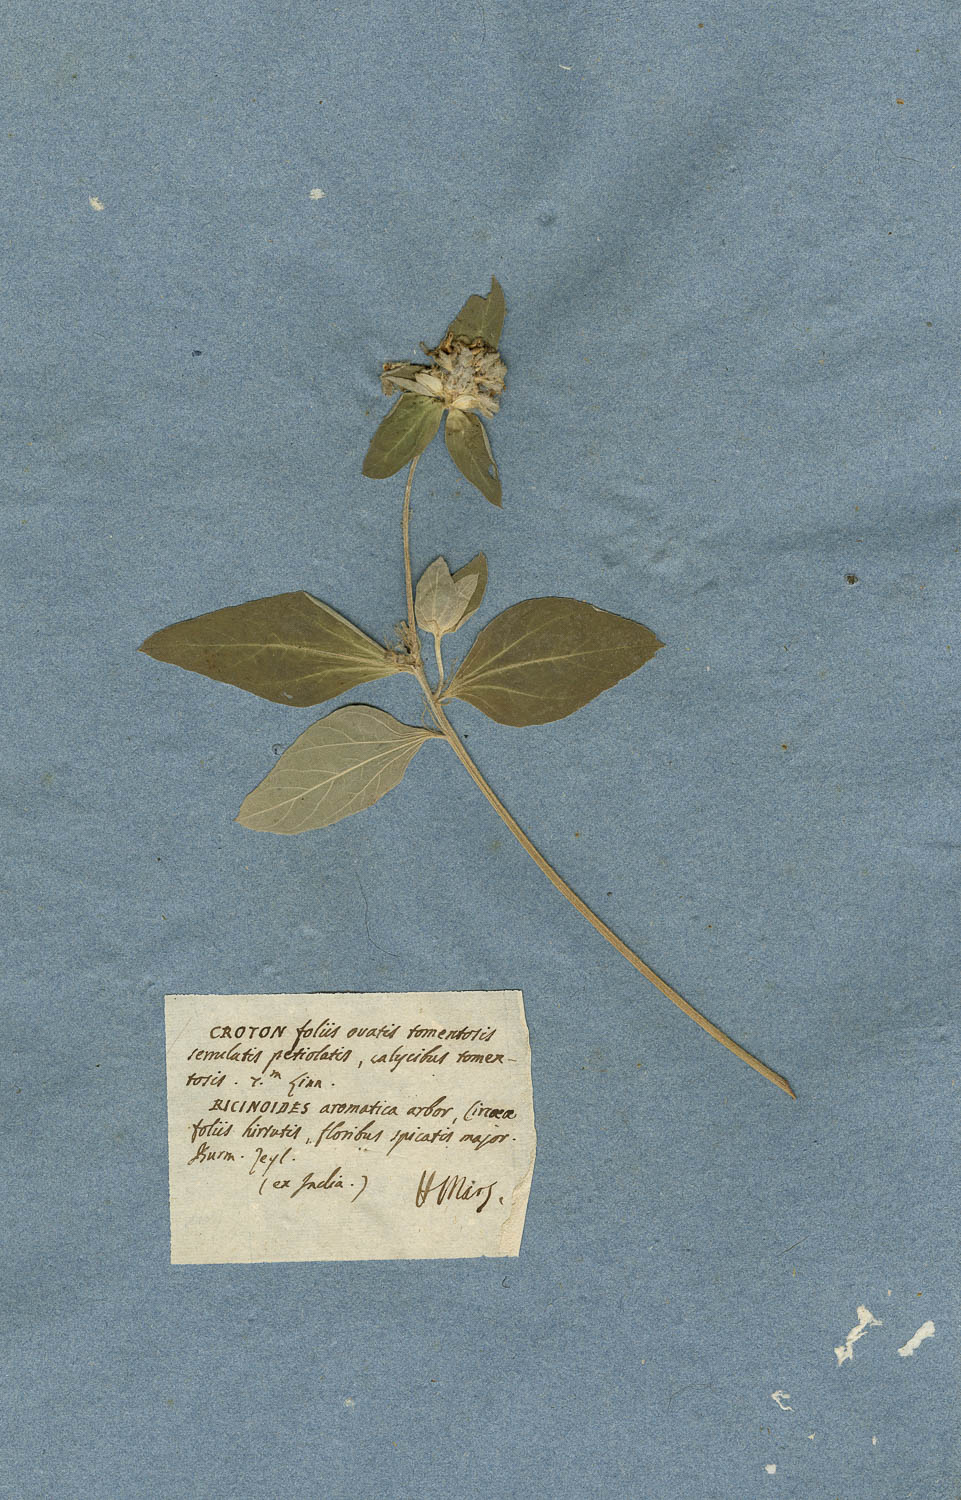 CROTON foliis ovatis tomentosis
serrulatis petiolatis, calycibus tomen-
tosis. r.m Linn.
RICINOIDES aromatica arbor, Circææ
foliis hirsutis, floribus spicatis major.
Burm. Zeyl.
(ex India.)